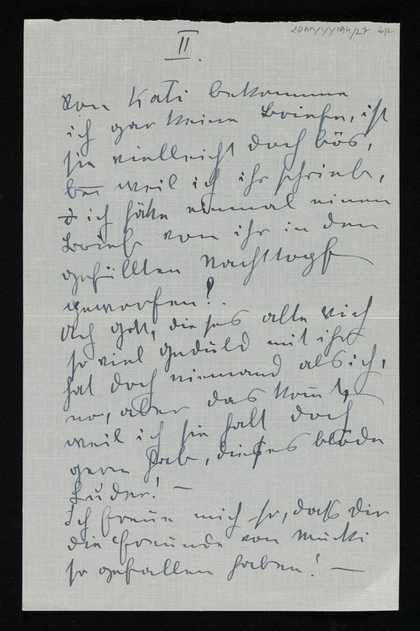 II.
von Kati bekomme
ich gar keine Briefe, ist
sie vielleicht doch bös,
weil ich ihr schrieb,
ich hätte einmal einen
Brief von ihr in den
gefüllten Nachttopf
geworfen!.
Ach Gott, dieses alte Vieh
so viel Geduld mit ihr
hat doch niemand als ich,
na, aber das kommt
weil ich sie halt doch
gern hab, dieses blöde
Luder! —
Ich freue mich so, dass Dir
die Freunde von Mucki
so gefallen haben! —